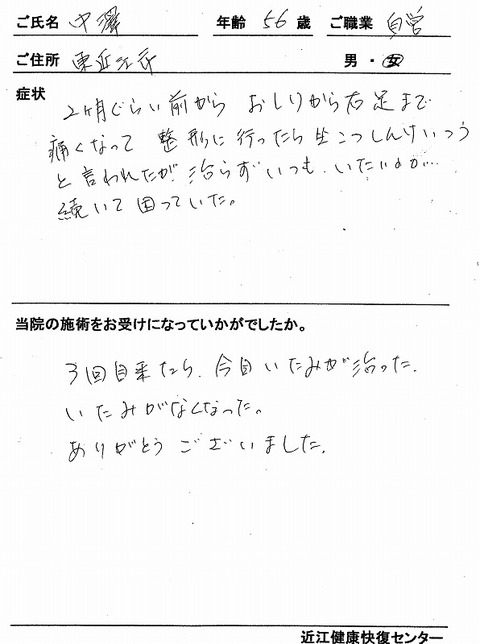 ご氏名 中澤 年齢 56 歳 ご職業 自営
ご住所 東近江市 男・女
症状
2ヶ月ぐらい前から おしりから右足まで
痛くなって 整形に行ったら坐こつしんけいつう
と言われたが治らずいつも、いたいのが…
続いて困っていた。
当院の施術をお受けになっていかがでしたか。
3回目来たら、今日いたみが治った.
いたみがなくなった。
ありがとうございました.
近江健康快復センター